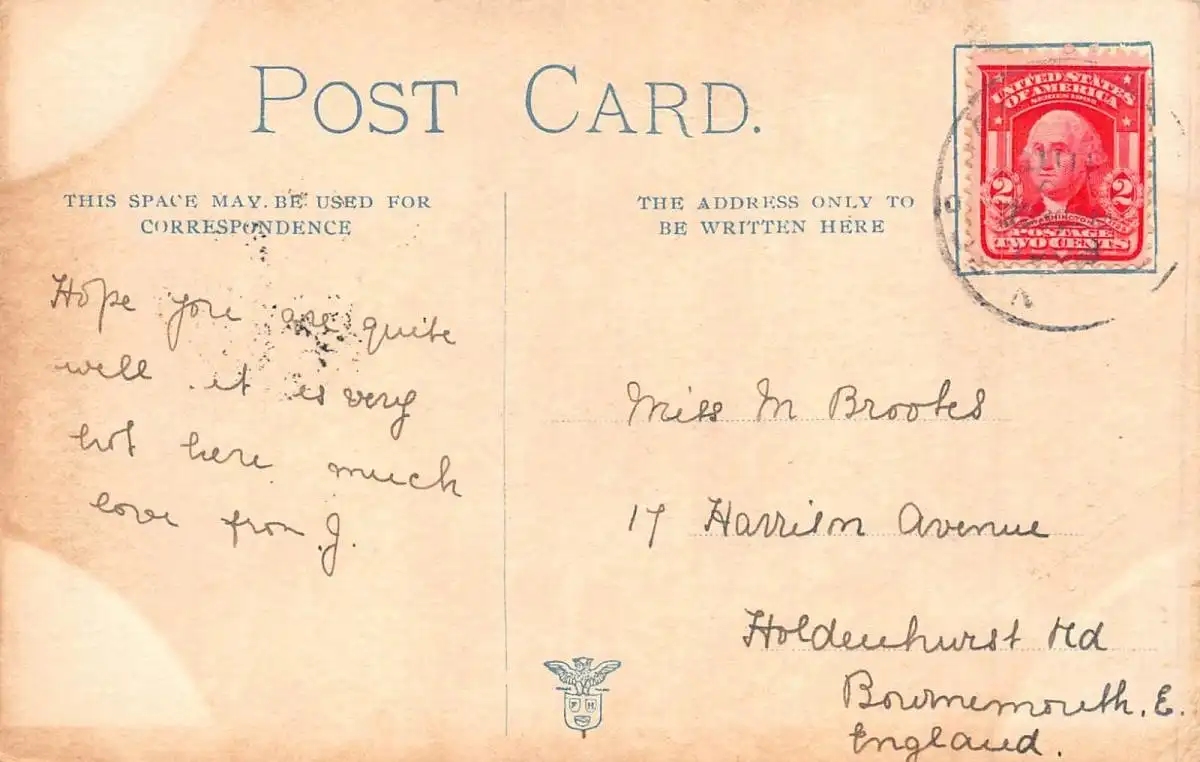 POST CARD.
THIS SPACE MAY BE USED FOR
CORRESPONDENCE
THE ADDRESS ONLY TO
BE WRITTEN HERE
UNITED STATES
OF AMERICA
SERIES 1902
2 2
WASHINGTON
POSTAGE
TWO CENTS
Hope you are quite
well it is very
hot here much
love from J.
Miss M Brookes
17 Harrison Avenue
Holdenhurst Rd
Bournemouth. E.
England.
F H